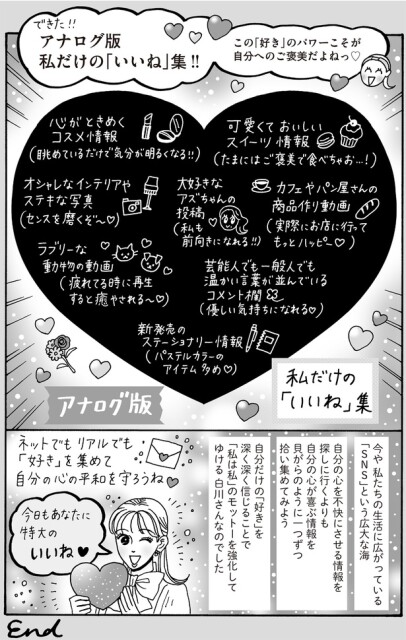 できた!!
アナログ版
私だけの「いいね」集!!
この「好き」のパワーこそが
自分へのご褒美だよねっ♡
心がときめく
コスメ情報
(眺めているだけで気分が明るくなる!!)
可愛くておいしい
スイーツ情報
(たまにはご褒美で食べちゃお…!)
オシャレなインテリアや
ステキな写真
(センスを磨くぞ〜♡)
大好きな
アズちゃんの
投稿
(私も
前向きになれる!!)
カフェやパン屋さんの
商品作り動画
(実際にお店に行って
もっとハッピー♡)
ラブリーな
動物の動画
(疲れてる時に再生
すると癒やされる〜♡)
芸能人でも一般人でも
温かい言葉が並んでいる
コメント欄
(優しい気持ちになれる♡)
新発売の
ステーショナリー情報
(パステルカラーの
アイテム多め♡)
アナログ版
私だけの
「いいね」集
今や私たちの生活に広がっている
「SNS」という広大な海
自分の心を不快にさせる情報を
探しに行くよりも
自分の心が喜ぶ情報を
貝がらのように一つずつ
拾い集めてみよう
自分だけの「好き」を
深く深く信じることで
「私は私」のモットーを強化して
ゆける白川さんなのでした
ネットでもリアルでも
「好き」を集めて
自分の心の平和を守ろうね
今日もあなたに
特大の
いいね♥
End